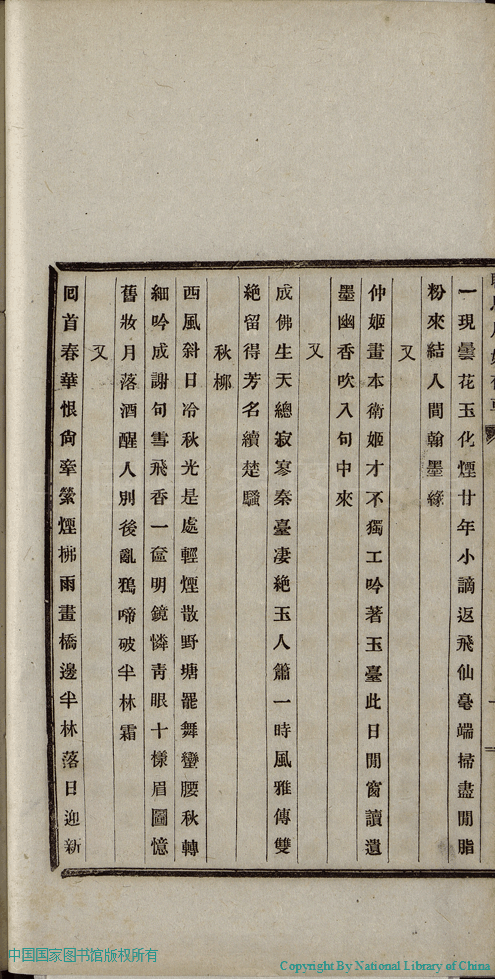 一現曇花玉化煙廿年小謫返飛仙毫端掃盡閒脂
粉來結人間翰墨緣
又
仲姬畫本衛姬才不獨工吟著玉臺此日閒窗讀遺
墨幽香吹入句中來
又
成佛生天總寂寥秦臺凄絶玉人簫一時風雅傳雙
絶留得芳名續楚騷
秋柳
西風斜日冷秋光是處輕煙散野塘罷舞蠻腰秋轉
細吟成謝句雪飛香一奩明鏡憐靑眼十樣眉圖憶
舊妝月落酒醒人別後亂鴉啼破半林霜
又
回首春華恨尙牽縈煙拂雨畫橋邊半林落日迎新
中国国家图书馆版权所有
Copyright By National Library of China